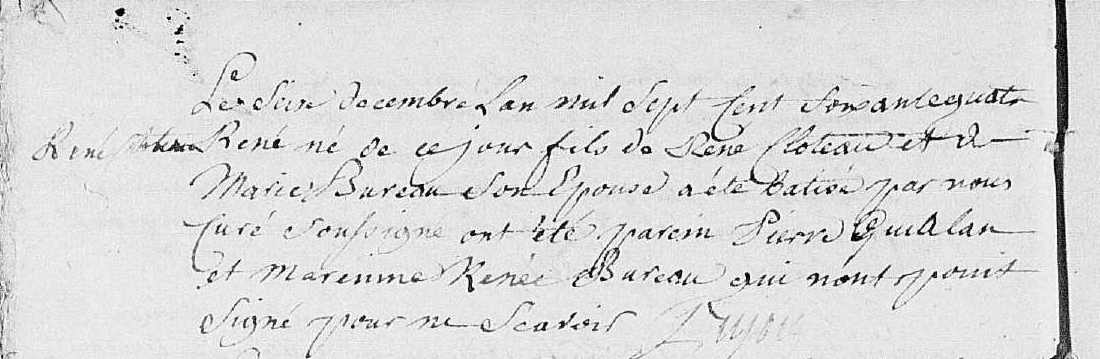 Le Seize decembre Lan mil Sept Cent Soixante quatre
René René né de ce jour fils de René Cloteau et de
Marie Bureau Son Epouse a été batisé par nous
Curé Soussigné ont été parein Pierre
et mareinne Renée Bureau qui nont point
Signé pour ne Scavoir